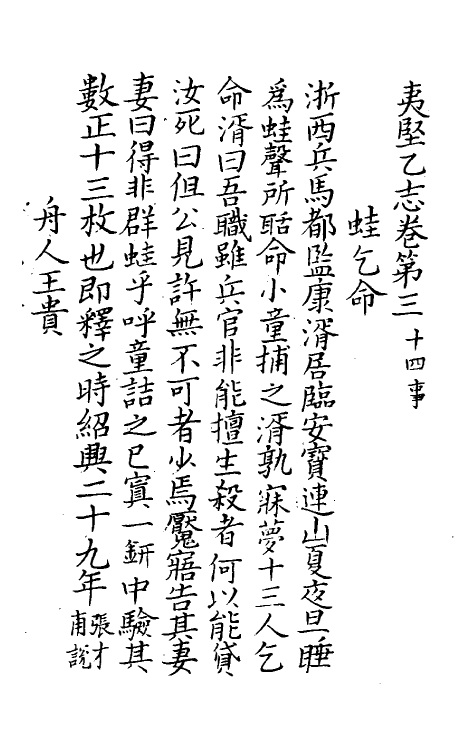 夷堅乙志卷第三 十四事
蛙乞命
浙西兵馬都監康湑居臨安寶連山夏夜且睡
爲蛙聲所聒命小童捕之湑孰寐夢十三人乞
命湑曰吾職雖兵官非能擅生殺者何以能貸
汝死曰但公見許無不可者少焉魘寤告其妻
妻曰得非群蛙乎呼童詰之已寘一缾中驗其
數正十三枚也即釋之時紹興二十九年 張才甫說
舟人王貴